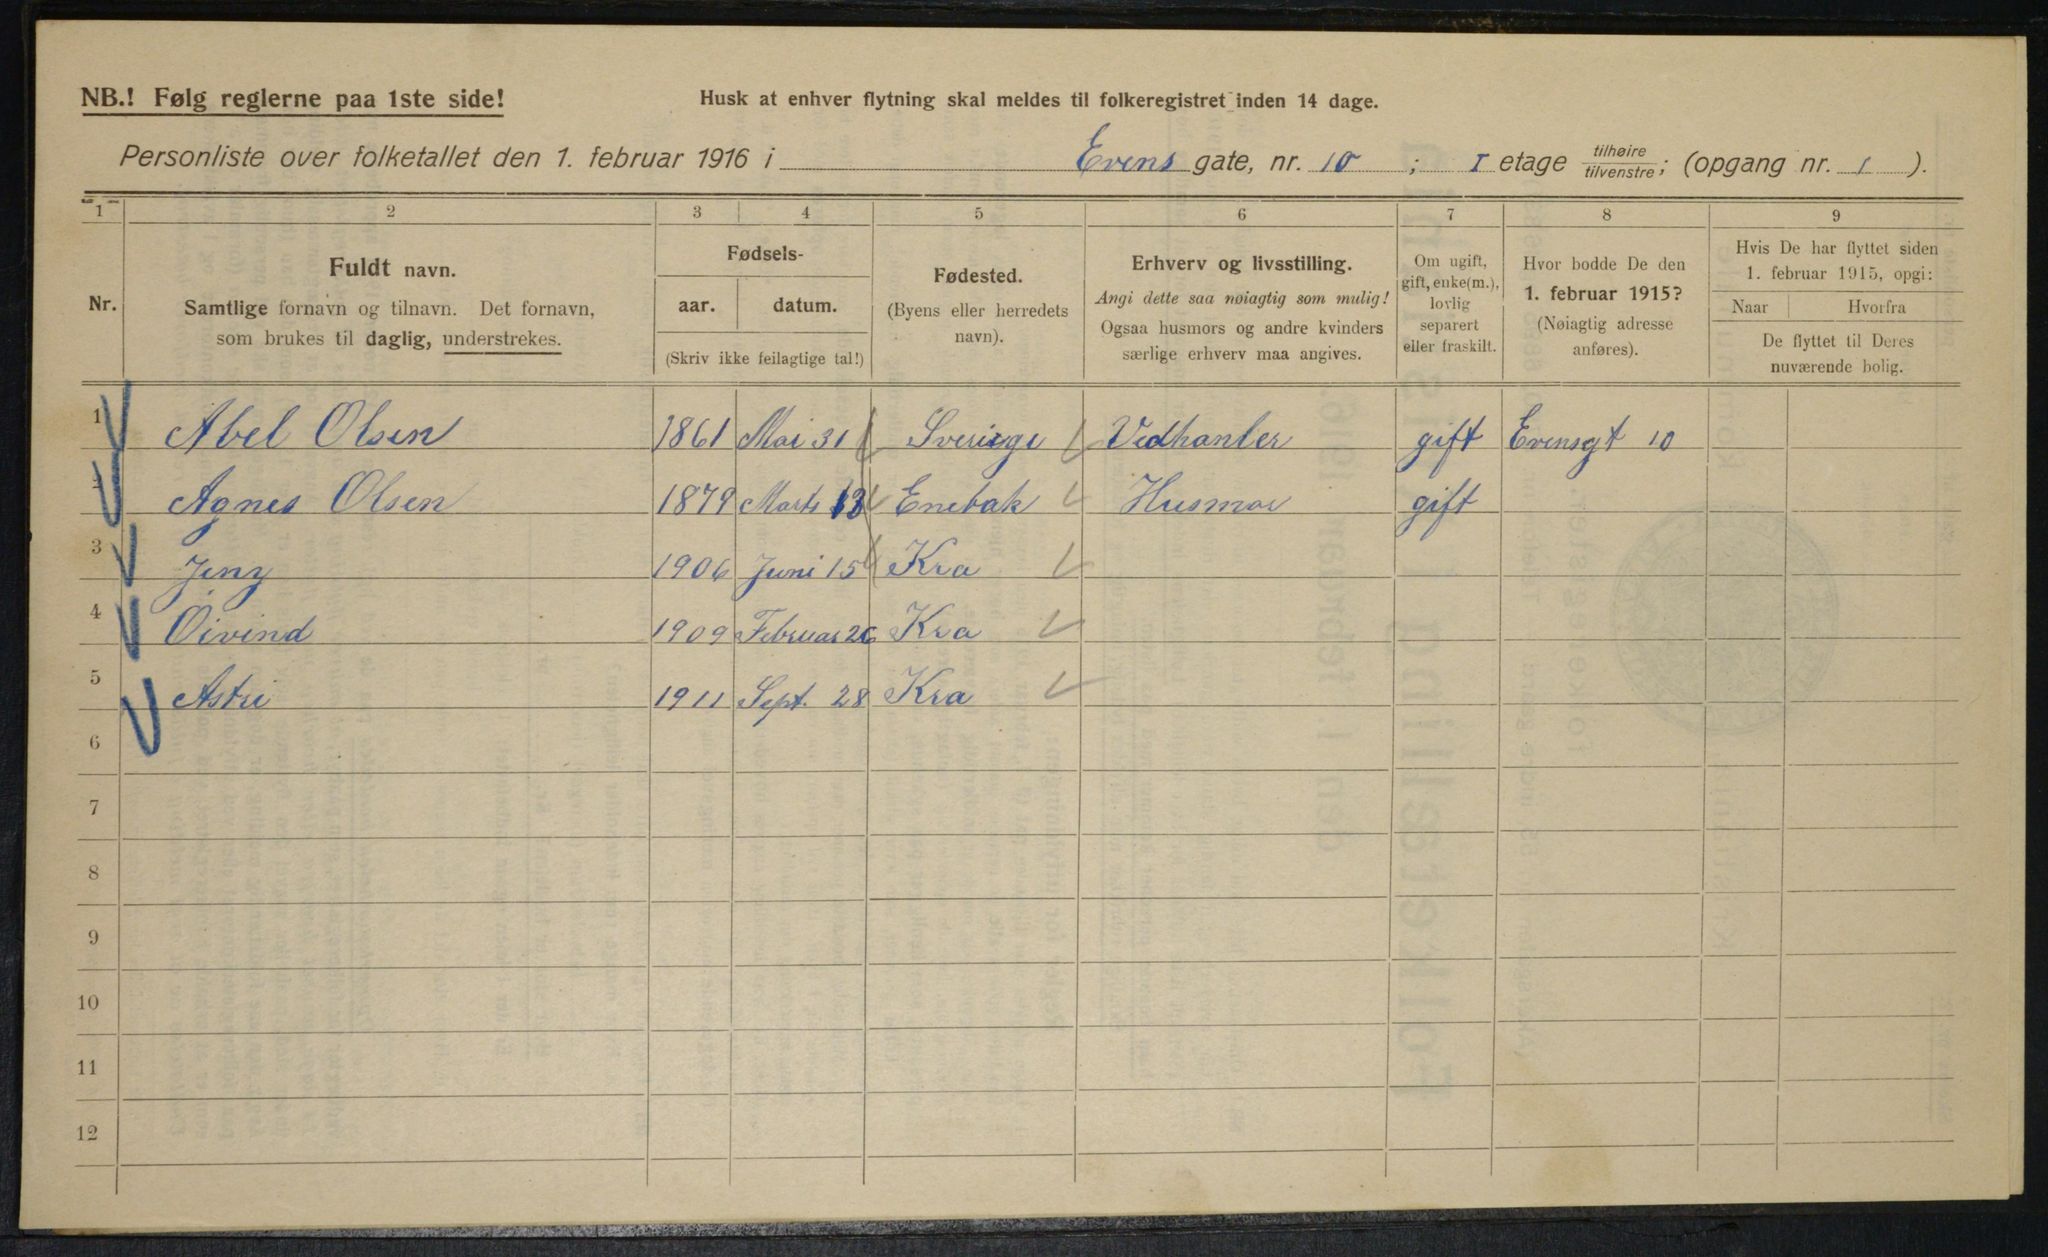 NB.! Følg reglerne paa 1ste side!
Husk at enhver flytning skal meldes til folkeregistret inden 14 dage.
Personliste over folketallet den 1. februar 1916 i Evens gate, nr. 10 ; I etage tilhøire/tilvenstre; (opgang nr. 1 ).
1 2 3 4 5 6 7 8 9
Nr.
Fuldt navn.
Samtlige fornavn og tilnavn. Det fornavn,
som brukes til daglig, understrekes.
Fødsels-
aar. datum.
(Skriv ikke feilagtige tal!)
Fødested.
(Byens eller herredets
navn).
Erhverv og livsstilling.
Angi dette saa nøiagtig som mulig!
Ogsaa husmors og andre kvinders
særlige erhverv maa angives.
Om ugift,
gift, enke(m.),
lovlig
separert
eller fraskilt.
Hvor bodde De den
1. februar 1915?
(Nøiagtig adresse
anføres).
Hvis De har flyttet siden
1. februar 1915, opgi:
Naar Hvorfra
De flyttet til Deres
nuværende bolig.
1 Abel Olsen 1861 Mai 31 Sveriege Vedhanler gift Evensgt 10
2 Agnes Olsen 1879 Marts 13 Enebak Husmor gift
3 Jeny 1906 Juni 15 Kra
4 Öivind 1909 Februar 26 Kra
5 Astri 1911 Sept. 28 Kra
6
7
8
9
10
11
12